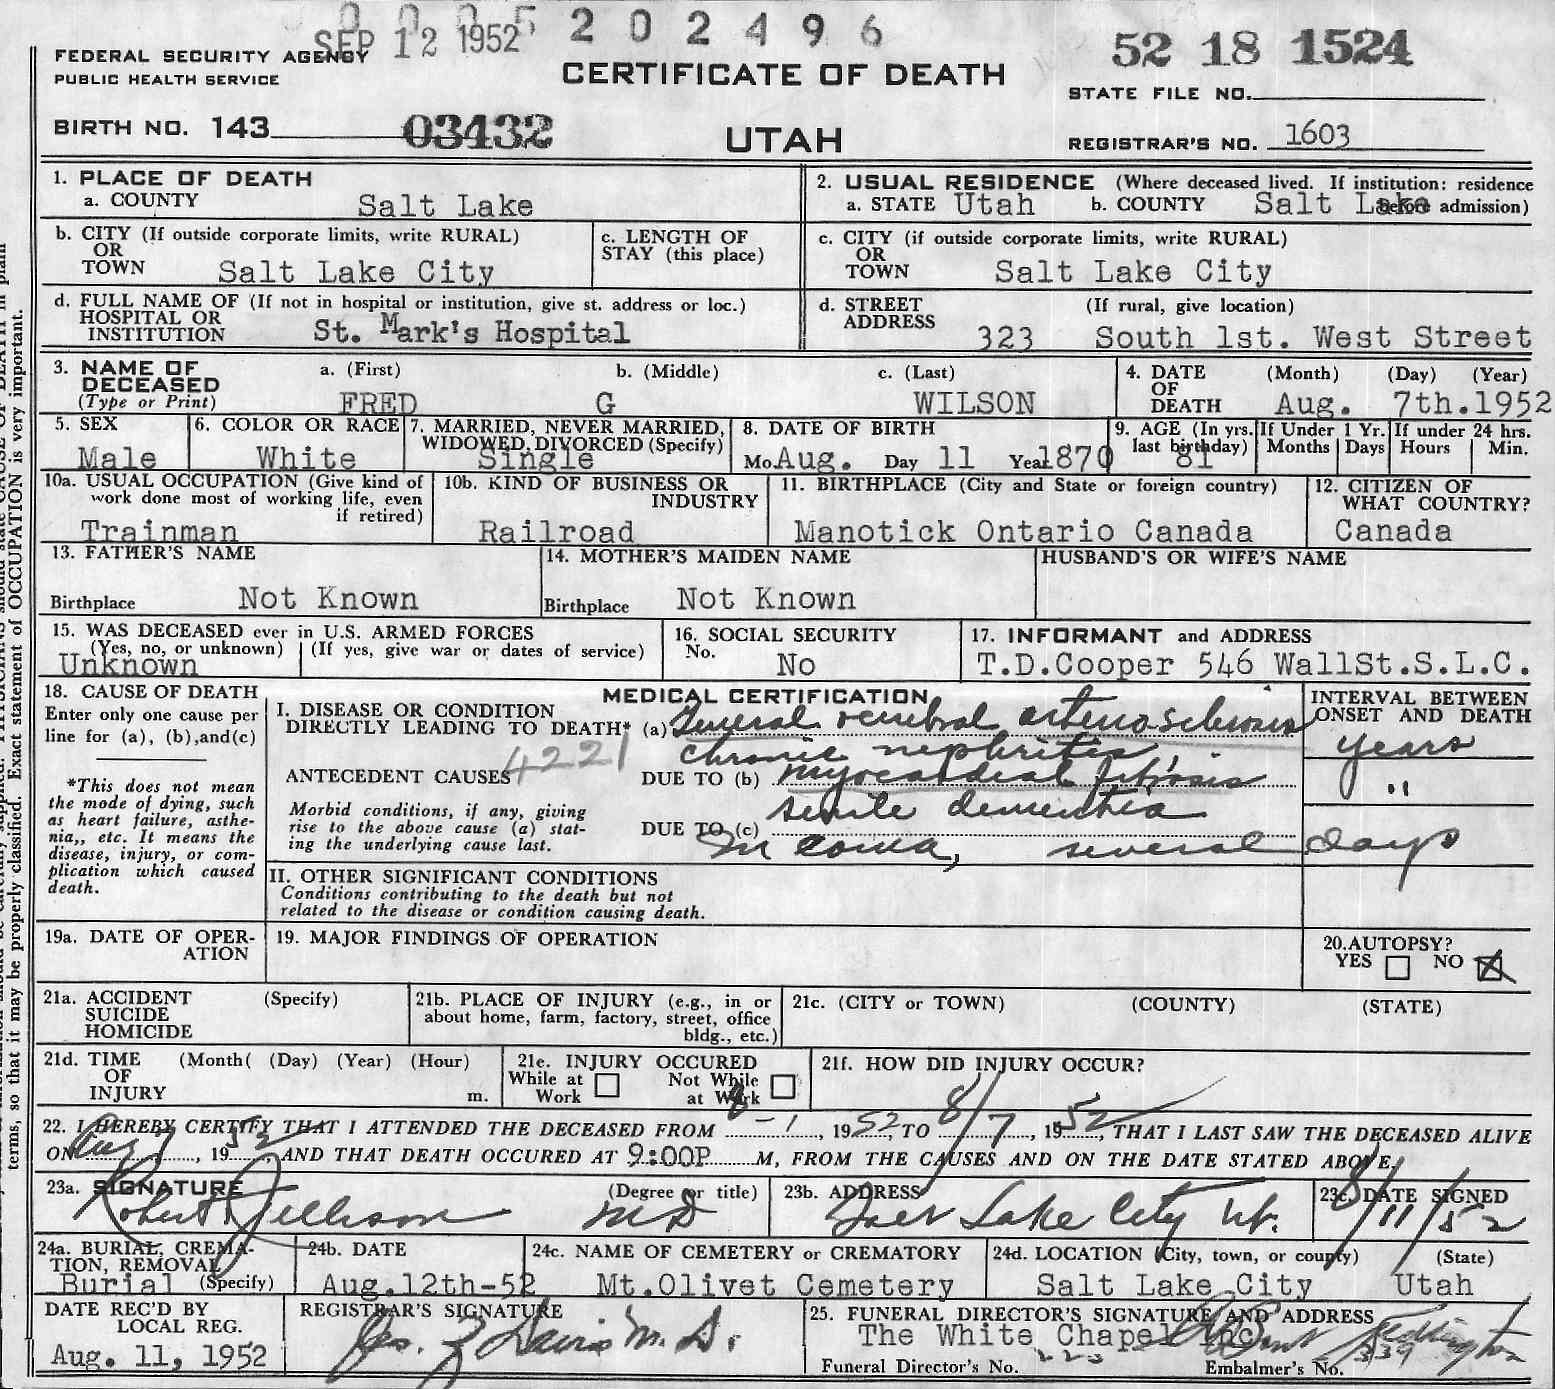 0 0 0 5 2 0 2 4 9 6
SEP 12 1952
52 18 1524
FEDERAL SECURITY AGENCY
PUBLIC HEALTH SERVICE
CERTIFICATE OF DEATH
STATE FILE NO.
BIRTH NO. 143 03432
UTAH
REGISTRAR'S NO. 1603
1. PLACE OF DEATH
a. COUNTY Salt Lake
2. USUAL RESIDENCE (Where deceased lived. If institution: residence before admission)
a. STATE Utah b. COUNTY Salt Lake
b. CITY (If outside corporate limits, write RURAL)
OR
TOWN Salt Lake City
c. LENGTH OF
STAY (this place)
c. CITY (if outside corporate limits, write RURAL)
OR
TOWN Salt Lake City
d. FULL NAME OF (If not in hospital or institution, give st. address or loc.)
HOSPITAL OR
INSTITUTION St. Mark's Hospital
d. STREET (If rural, give location)
ADDRESS 323 South 1st. West Street
3. NAME OF a. (First) b. (Middle) c. (Last)
DECEASED
(Type or Print) FRED G WILSON
4. DATE (Month) (Day) (Year)
OF
DEATH Aug. 7th.1952
5. SEX
Male
6. COLOR OR RACE
White
7. MARRIED, NEVER MARRIED,
WIDOWED, DIVORCED (Specify)
Single
8. DATE OF BIRTH
Mo. Aug. Day 11 Year 1870
9. AGE (In yrs.
last birthday) 81
If Under 1 Yr.
Months Days
If under 24 hrs.
Hours Min.
10a. USUAL OCCUPATION (Give kind of
work done most of working life, even
if retired)
Trainman
10b. KIND OF BUSINESS OR
INDUSTRY
Railroad
11. BIRTHPLACE (City and State or foreign country)
Manotick Ontario Canada
12. CITIZEN OF
WHAT COUNTRY?
Canada
13. FATHER'S NAME
Birthplace Not Known
14. MOTHER'S MAIDEN NAME
Birthplace Not Known
HUSBAND'S OR WIFE'S NAME
15. WAS DECEASED ever in U.S. ARMED FORCES
(Yes, no, or unknown) (If yes, give war or dates of service)
Unknown
16. SOCIAL SECURITY
No. No
17. INFORMANT and ADDRESS
T.D.Cooper 546 WallSt.S.L.C.
18. CAUSE OF DEATH
Enter only one cause per
line for (a), (b),and(c)
*This does not mean
the mode of dying, such
as heart failure, asthe-
nia,, etc. It means the
disease, injury, or com-
plication which caused
death.
MEDICAL CERTIFICATION
INTERVAL BETWEEN
ONSET AND DEATH
I. DISEASE OR CONDITION
DIRECTLY LEADING TO DEATH* (a) General cerebral arterio sclerosis
chronic nephritis, years
4221
ANTECEDENT CAUSES DUE TO (b) myocardial fibrosis "
Morbid conditions, if any, giving
rise to the above cause (a) stat-
ing the underlying cause last.
senile dementia
DUE TO (c) In coma, several days
II. OTHER SIGNIFICANT CONDITIONS
Conditions contributing to the death but not
related to the disease or condition causing death.
19a. DATE OF OPER-
ATION
19. MAJOR FINDINGS OF OPERATION
20.AUTOPSY?
YES NO
21a. ACCIDENT (Specify)
SUICIDE
HOMICIDE
21b. PLACE OF INJURY (e.g., in or
about home, farm, factory, street, office
bldg., etc.)
21c. (CITY or TOWN) (COUNTY) (STATE)
21d. TIME (Month( (Day) (Year) (Hour)
OF
INJURY m.
21e. INJURY OCCURED
While at Work Not While at Work
21f. HOW DID INJURY OCCUR?
22. I HEREBY CERTIFY THAT I ATTENDED THE DECEASED FROM 8-1, 1952, TO 8/7, 1952, THAT I LAST SAW THE DECEASED ALIVE
ON Aug 7, 1952 AND THAT DEATH OCCURED AT 9:00P M, FROM THE CAUSES AND ON THE DATE STATED ABOVE.
23a. SIGNATURE (Degree or title)
Robert Jellison MD
23b. ADDRESS
Salt Lake City Ut.
23c. DATE SIGNED
8/11/52
24a. BURIAL, CREMA-
TION, REMOVAL
Burial (Specify)
24b. DATE
Aug.12th-52
24c. NAME OF CEMETERY or CREMATORY
Mt.Olivet Cemetery
24d. LOCATION (City, town, or county) (State)
Salt Lake City Utah
DATE REC'D BY
LOCAL REG.
Aug. 11, 1952
REGISTRAR'S SIGNATURE
Jos. Davis M.D.
25. FUNERAL DIRECTOR'S SIGNATURE AND ADDRESS
The White Chapel Inc
Funeral Director's No. 223 Embalmer's No. 339